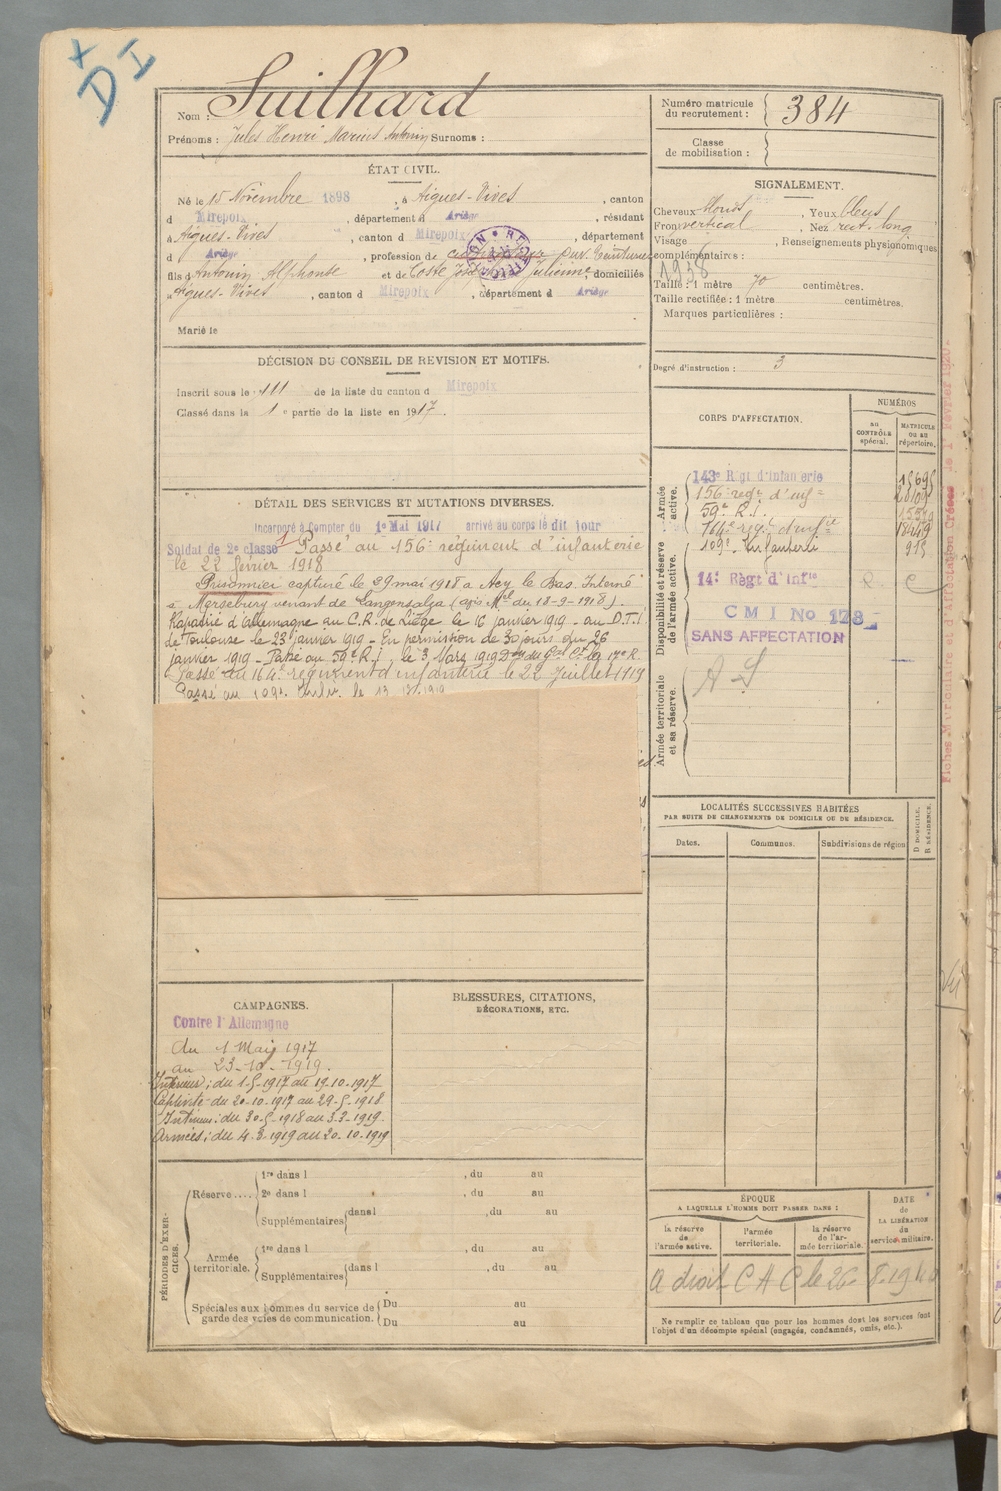 +
D I
Nom : Suilhard
Prénoms : Jules Henri Marius Antonin Surnoms :
Numéro matricule
du recrutement : 384
Classe
de mobilisation :
ÉTAT CIVIL.
Né le 15 Novembre 1898, à Aigues-Vives, canton
d Mirepoix, département d Ariège, résidant
à Aigues-Vives, canton d Mirepoix, département
d Ariège, profession de
fils d'Antonin Alphonse et de Coste Julienne, domiciliés
à Aigues-Vives, canton d Mirepoix, département d Ariège
Marié le
SIGNALEMENT.
Cheveux blonds, Yeux bleus
Front vertical, Nez rect. long
Visage, Renseignements physionomiques
complémentaires :
1938
Taille : 1 mètre 70 centimètres.
Taille rectifiée : 1 mètre centimètres.
Marques particulières :
Degré d'instruction : 3
DÉCISION DU CONSEIL DE REVISION ET MOTIFS.
Inscrit sous le n° 111 de la liste du canton d Mirepoix
Classé dans la 1e partie de la liste en 1917.
DÉTAIL DES SERVICES ET MUTATIONS DIVERSES.
Incorporé à compter du 1e Mai 1917 arrivé au corps le dit jour
Soldat de 2e classe Passé au 156e régiment d'infanterie
le 22 février 1918
Prisonnier capturé le 29 mai 1918 à Acy le Bas. Interné
à Merseburg venant de Langensalza (avis Mel du 18-9-1918).
Rapatrié d'Allemagne au C.R. de Liège le 16 janvier 1919 - au D.T.I.
de Toulouse le 23 janvier 1919 - En permission de 30 jours du 26
janvier 1919 - Passé au 59e R.I. le 3 Mars 1919 la 17e R.
Passé au 164e régiment d'infanterie le 22 Juillet 1919
Passé au 109e Infie. le 13
CORPS D'AFFECTATION.
NUMÉROS
au
CONTRÔLE
spécial.
MATRICULE
ou au
répertoire.
Armée
active.
143e Régt d'Infanterie
156e regt d'inf
59e R.I.
164e regt d'infie
109e Infanterie
Disponibilité et réserve
de l'armée active.
14e Régt d'Infie R. C
CMI No 178
SANS AFFECTATION
Armée territoriale
et sa réserve.
A S
Fiches Matriculaire et d'Affectation Créées le 1er Février 1920
LOCALITÉS SUCCESSIVES HABITÉES
PAR SUITE DE CHANGEMENTS DE DOMICILE OU DE RÉSIDENCE.
Dates.
Communes.
Subdivisions de région
D DOMICILE.
R RÉSIDENCE.
CAMPAGNES.
Contre l'Allemagne
du 1 Mai 1917
au 23-10-1919.
Intérieur : du 1-5-1917 au 19-10-1917
Captivité du 20-10-1917 au 29-5-1918
Intérieur : du 30-5-1918 au 3-3-1919
Armées : du 4-3-1919 au 20-10-1919
BLESSURES, CITATIONS,
DÉCORATIONS, ETC.
PÉRIODES D'EXER-
CICES.
Réserve....
1re dans l , du au
2e dans l , du au
Supplémentaires dans l , du au
Armée
territoriale.
1re dans l , du au
Supplémentaires dans l , du au
Spéciales aux hommes du service de
garde des voies de communication.
Du au
Du au
ÉPOQUE
A LAQUELLE L'HOMME DOIT PASSER DANS :
la réserve
de
l'armée active.
l'armée
territoriale.
la réserve
de l'ar-
mée territoriale.
DATE
de
LA LIBÉRATION
du
service militaire.
a droit C A C le 26
Ne remplir ce tableau que pour les hommes dont les services font
l'objet d'un décompte spécial (engagés, condamnés, omis, etc.).